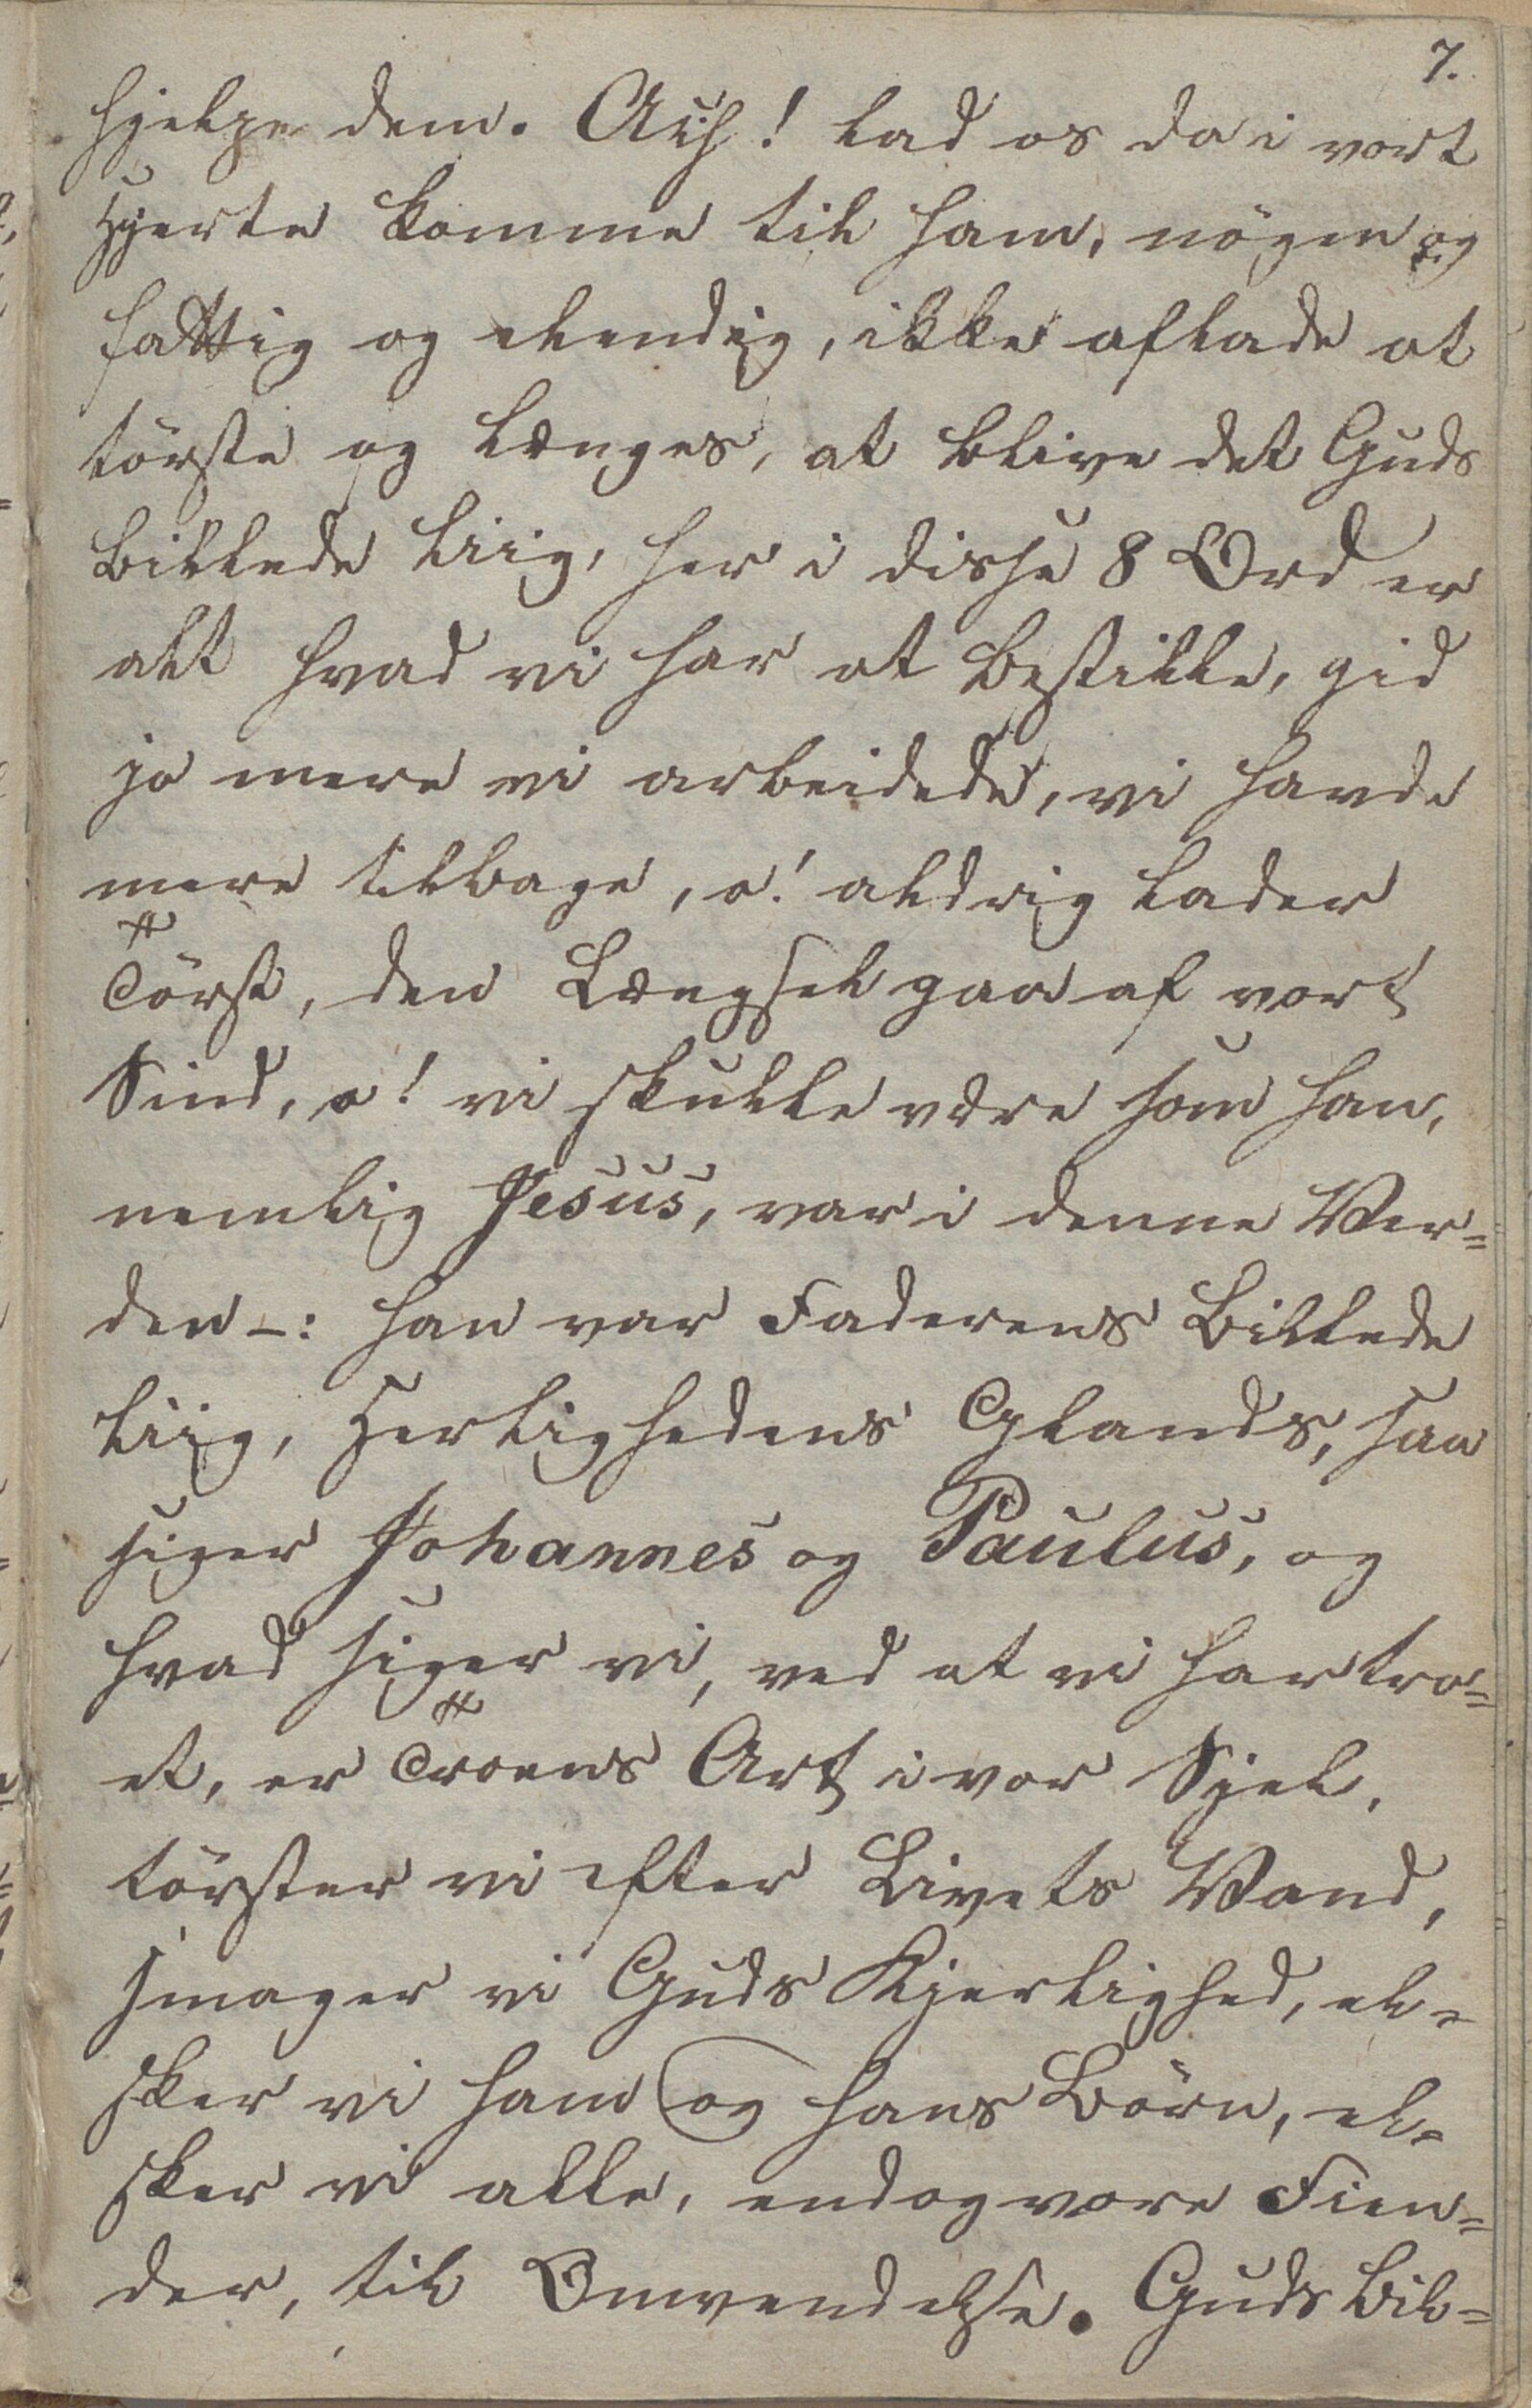 7.
hjelpe dem. Ach! lad os da i vort
Hjerte komme til ham, nögen og
fattig og elendig, ikke aflade at
törste og længes, at blive det Guds
billede liig, her i disse 8 Ord er
alt hvad vi har at bestille, gid
jo mere vi arbeidede, vi havde
mere tilbage, o! aldrig lader
Törst, den Længsel gaa af vort
Sind, o! vi skulle være som han,
nemlig Jesus, var i denne Ver=
den-: han var Faderens Billede
liig, Herlighedens Glands, saa
siger Johannes og Paulus, og
hvad siger vi, ved at vi har tro=
et, er Troens Art i vor Sjel,
törster vi efter Livets Vand,
smager vi Guds Kjerlighed, el=
sker vi ham og hans Börn, el=
sker vi alle, endog vore Fien=
der, til Omvendelse. Guds bil=